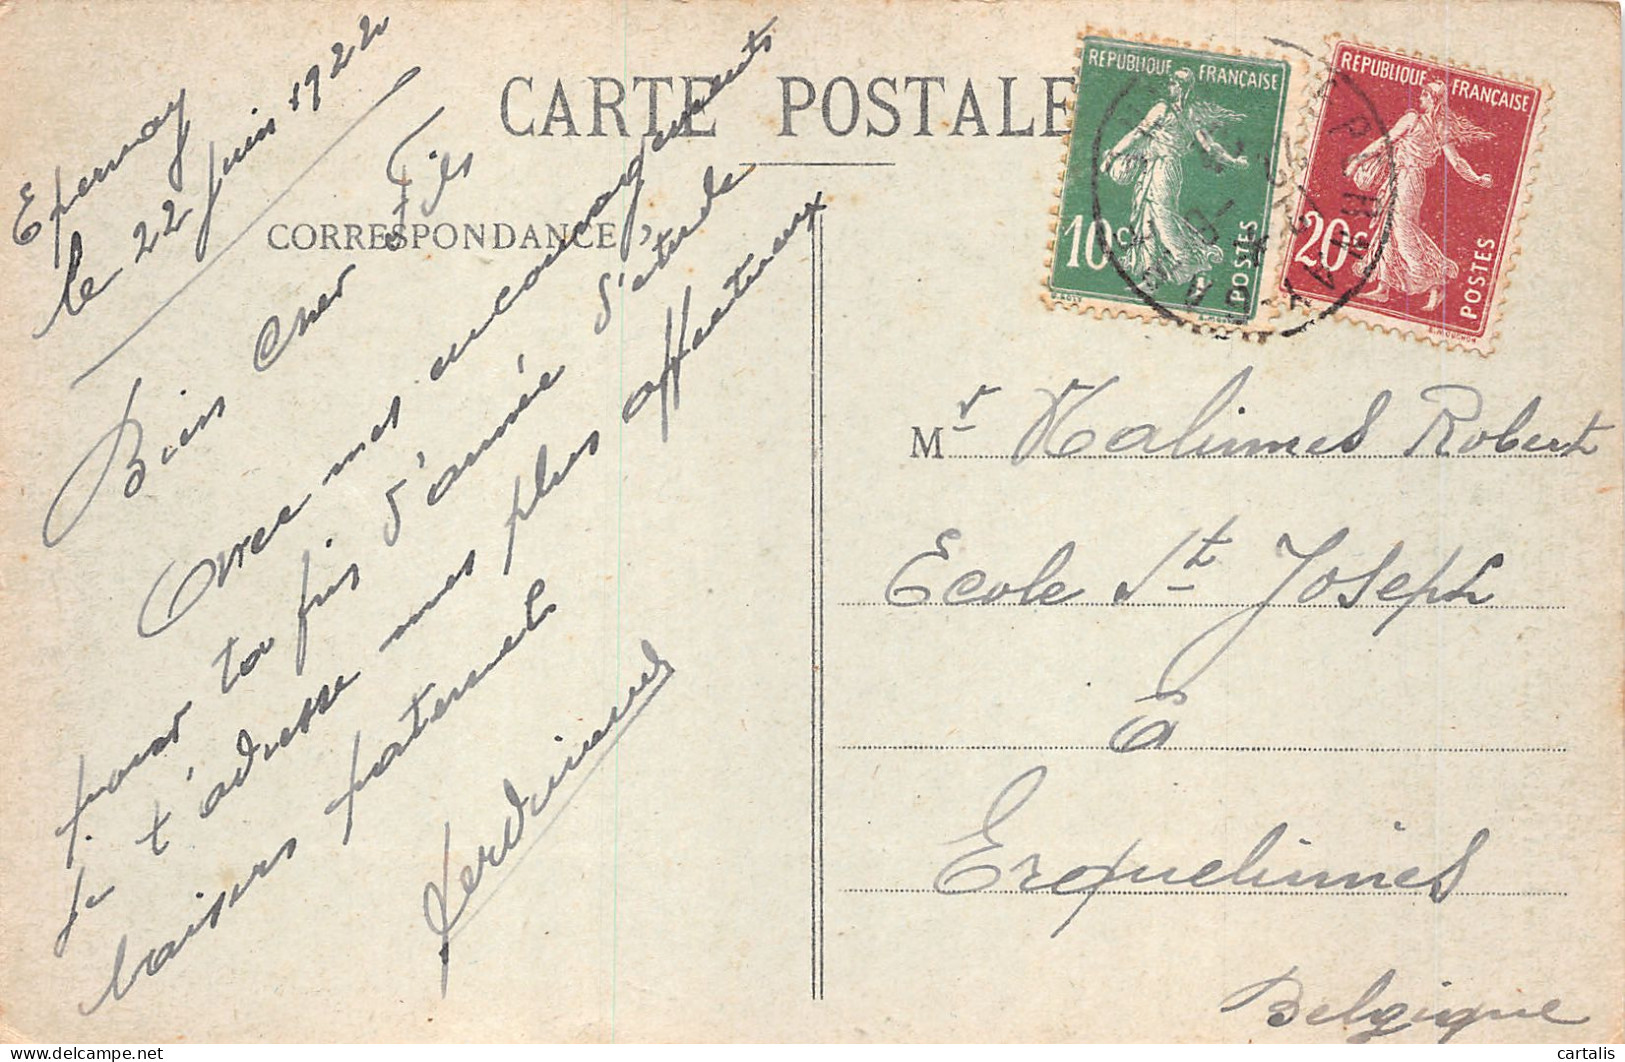 CARTE POSTALE
CORRESPONDANCE
Epernay
le 22 Juin 1922
Bien cher Fils
Avec mes encouragements
pour ta fin d'année d'étude
je t'adresse mes plus affectueux
baisers paternels
REPUBLIQUE FRANÇAISE
10c
POSTES
REPUBLIQUE FRANÇAISE
20c
POSTES
Mr Malinnes Robert
Ecole St Joseph
à
Erquelinnes
Belgique
cartalis